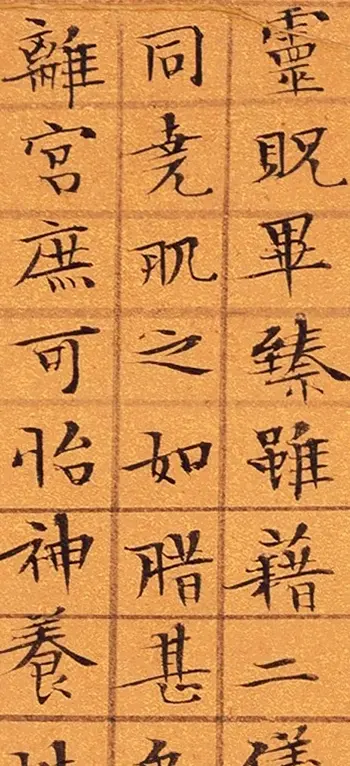 靈貺畢臻雖藉二儀
同堯肌之如腊甚
離宮庶可怡神養